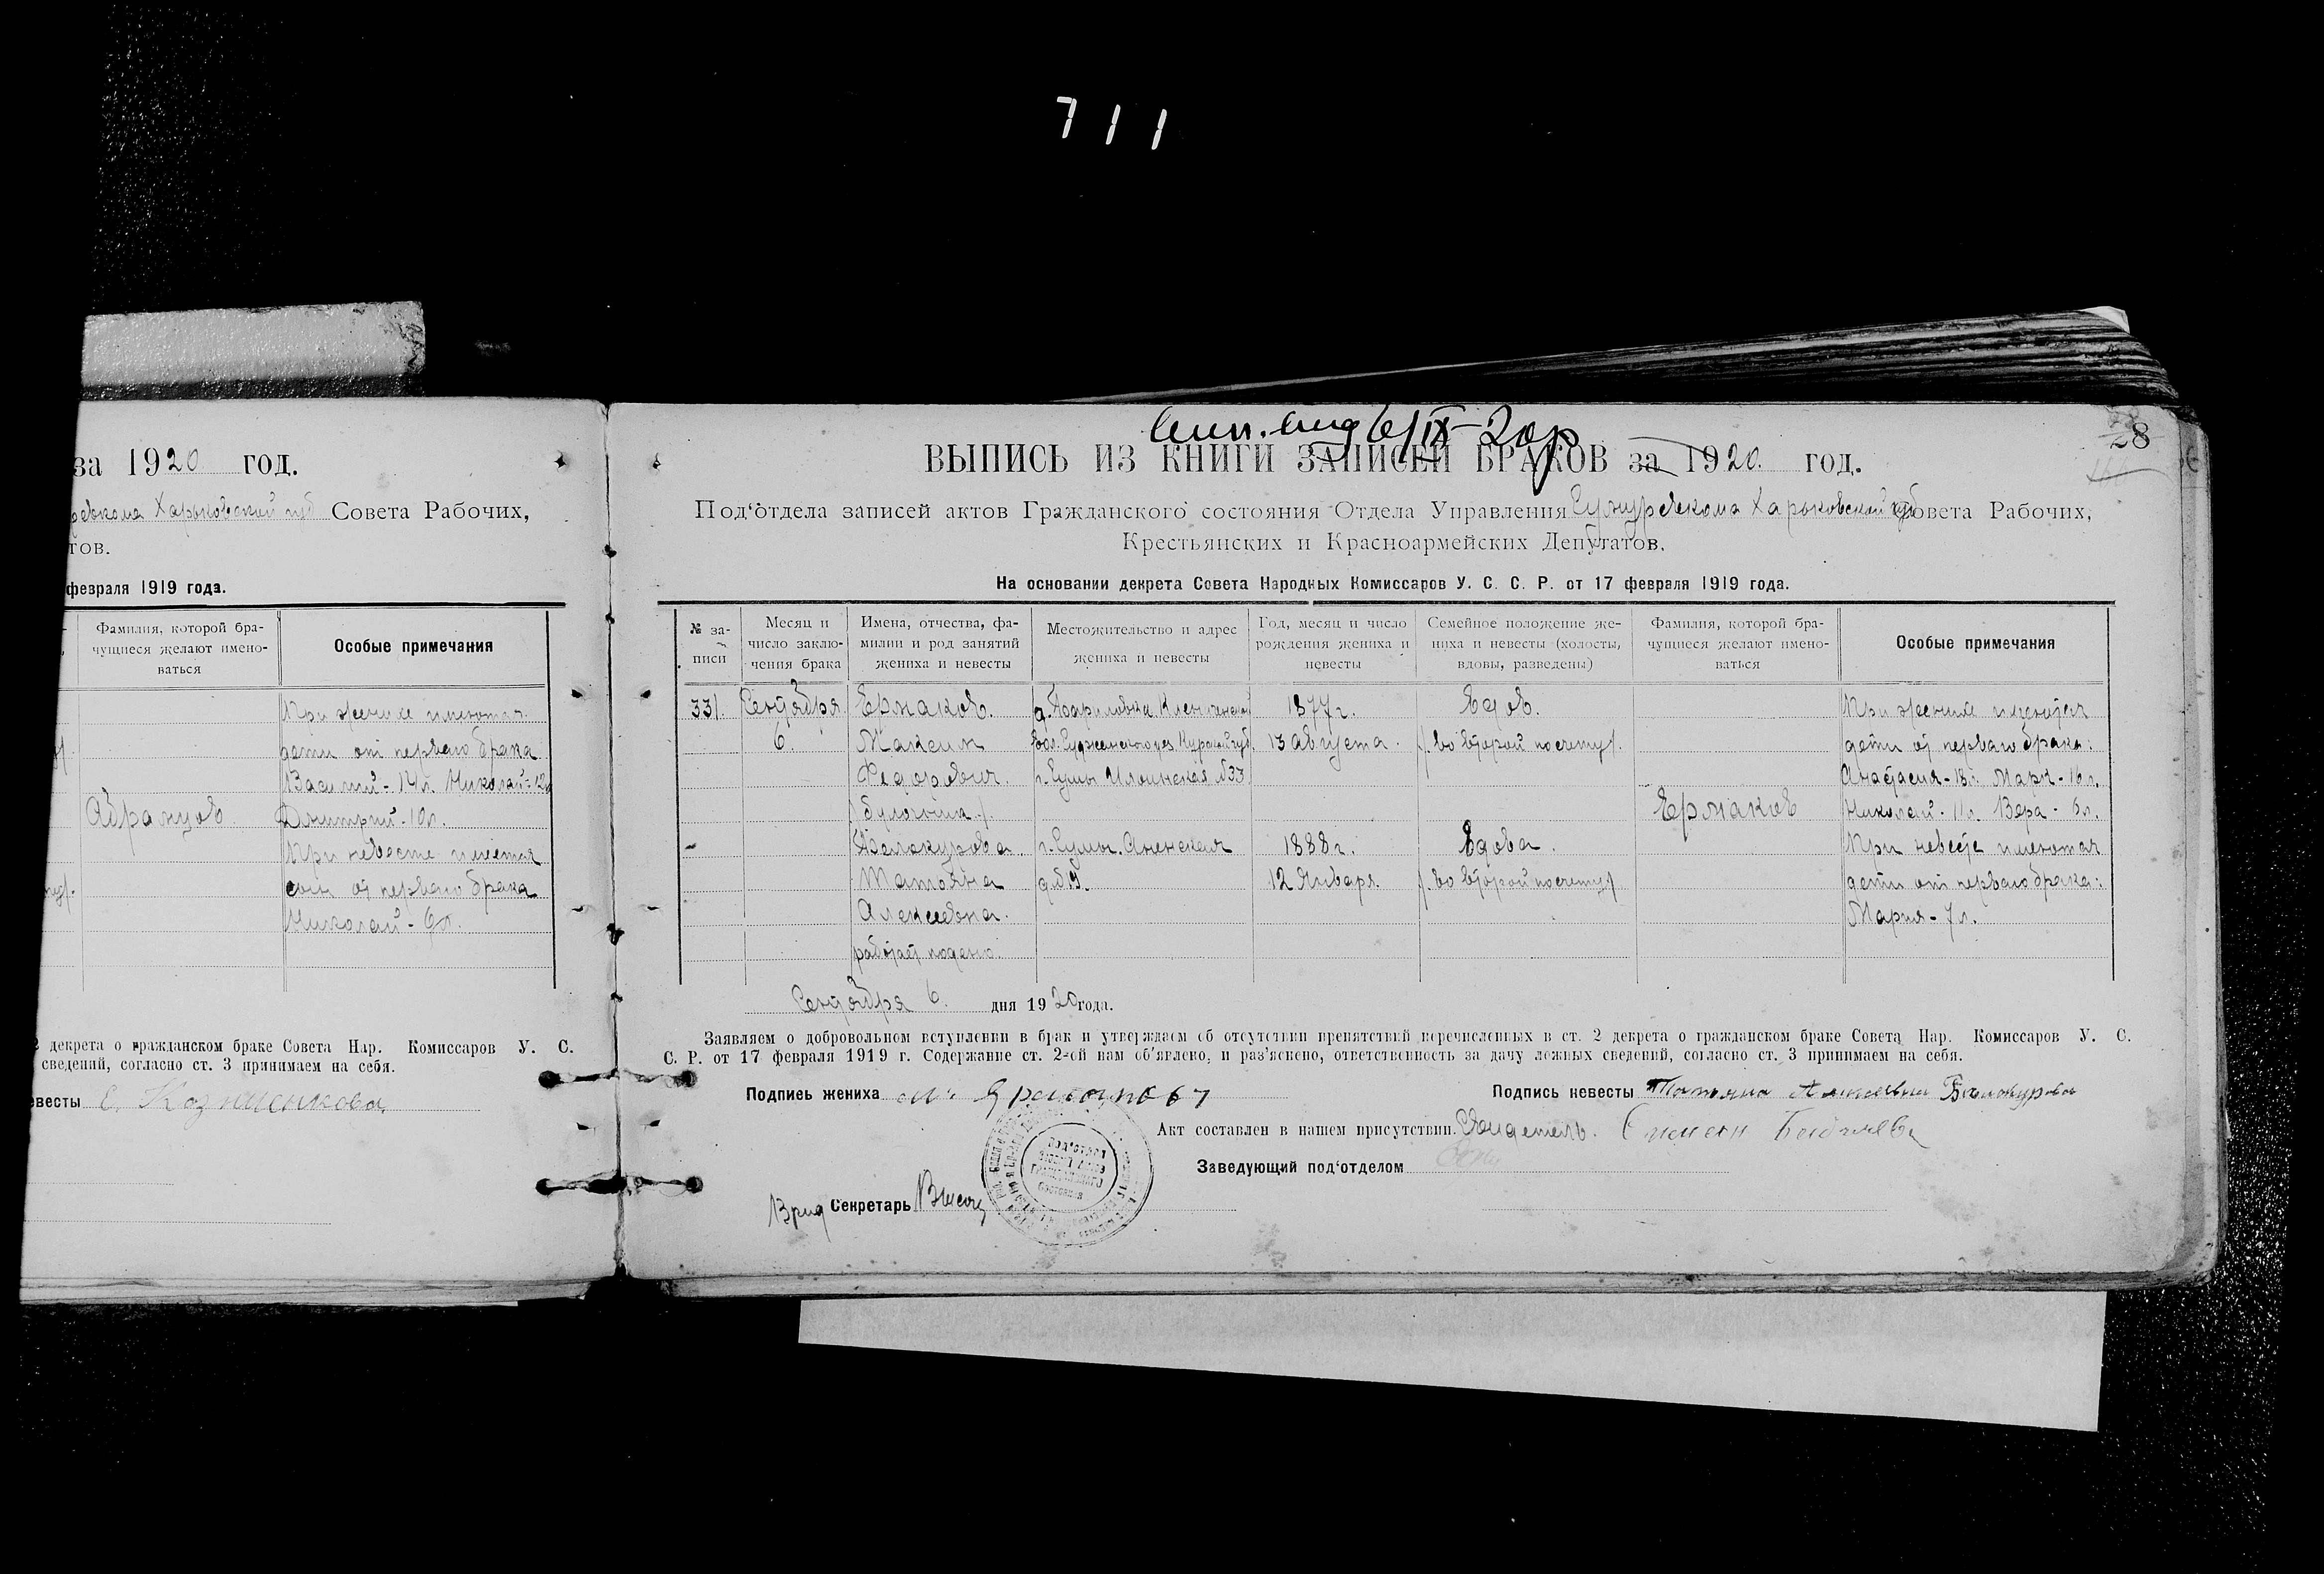 711
за 1920 год.
ревкома Харьковской губ Совета Рабочих,
тов.
февраля 1919 года.
Фамилия, которой бра-
чущиеся желают имено-
ваться
Особые примечания
При женихе имеются
дети от первого брака
Василий - 14 л. Николай - 12
Абрамцов Дмитрий - 10 л.
При невесте имеется
сын от первого брака
Николай - 6 л.
2 декрета о гражданском браке Совета Нар. Комиссаров У. С.
сведений, согласно ст. 3 принимаем на себя.
евесты
28
6/IX-20
ВЫПИСЬ ИЗ КНИГИ ЗАПИСЕЙ БРАКОВ за 1920 год.
Под'отдела записей актов Гражданского состояния Отдела Управления Сумуревкома Харьковской губ Совета Рабочих,
Крестьянских и Красноармейских Депутатов.
На основании декрета Совета Народных Комиссаров У. С. С. Р. от 17 февраля 1919 года.
№ за-
писи
Месяц и
число заклю-
чения брака
Имена, отчества, фа-
милии и род занятий
жениха и невесты
Местожительство и адрес
жениха и невесты
Год, месяц и число
рождения жениха и
невесты
Семейное положение же-
ниха и невесты (холосты,
вдовы, разведены)
Фамилия, которой бра-
чущиеся желают имено-
ваться
Особые примечания
331. Сентября Ермаков. 1877 г. Вдов. При женихе имеются
6. Максим вол. Суджанского уез. Курской губ. 13 августа. /во второй по счету/. дети от первого брака:
Федорович. г. Сумы Ильинская №33 Анастасия - 18 л. Марк - 16 л.
Ермаков Николай - 11 л. Вера - 6 л.
Белокурова г. Сумы. 1888 г. Вдова. При невесте имеются
Татьяна д. № 12 Января. /во второй по счету/ дети от первого брака:
Алексеевна. Мария - 7 л.
работает поденно.
Сентября 6. дня 1920 года.
Заявляем о добровольном вступлении в брак и утверждаем об отсутствии препятствий перечисленных в ст. 2 декрета о гражданском браке Совета Нар. Комиссаров У. С.
С. Р. от 17 февраля 1919 г. Содержание ст. 2-ой нам об'явлено, и раз'яснено, ответственность за дачу ложных сведений, согласно ст. 3 принимаем на себя.
Подпись жениха
Подпись невесты Татьяна Алексевна Белокурова
Акт составлен в нашем присутствии. Свидетель. Симеон
Заведующий под'отделом
Врид Секретарь